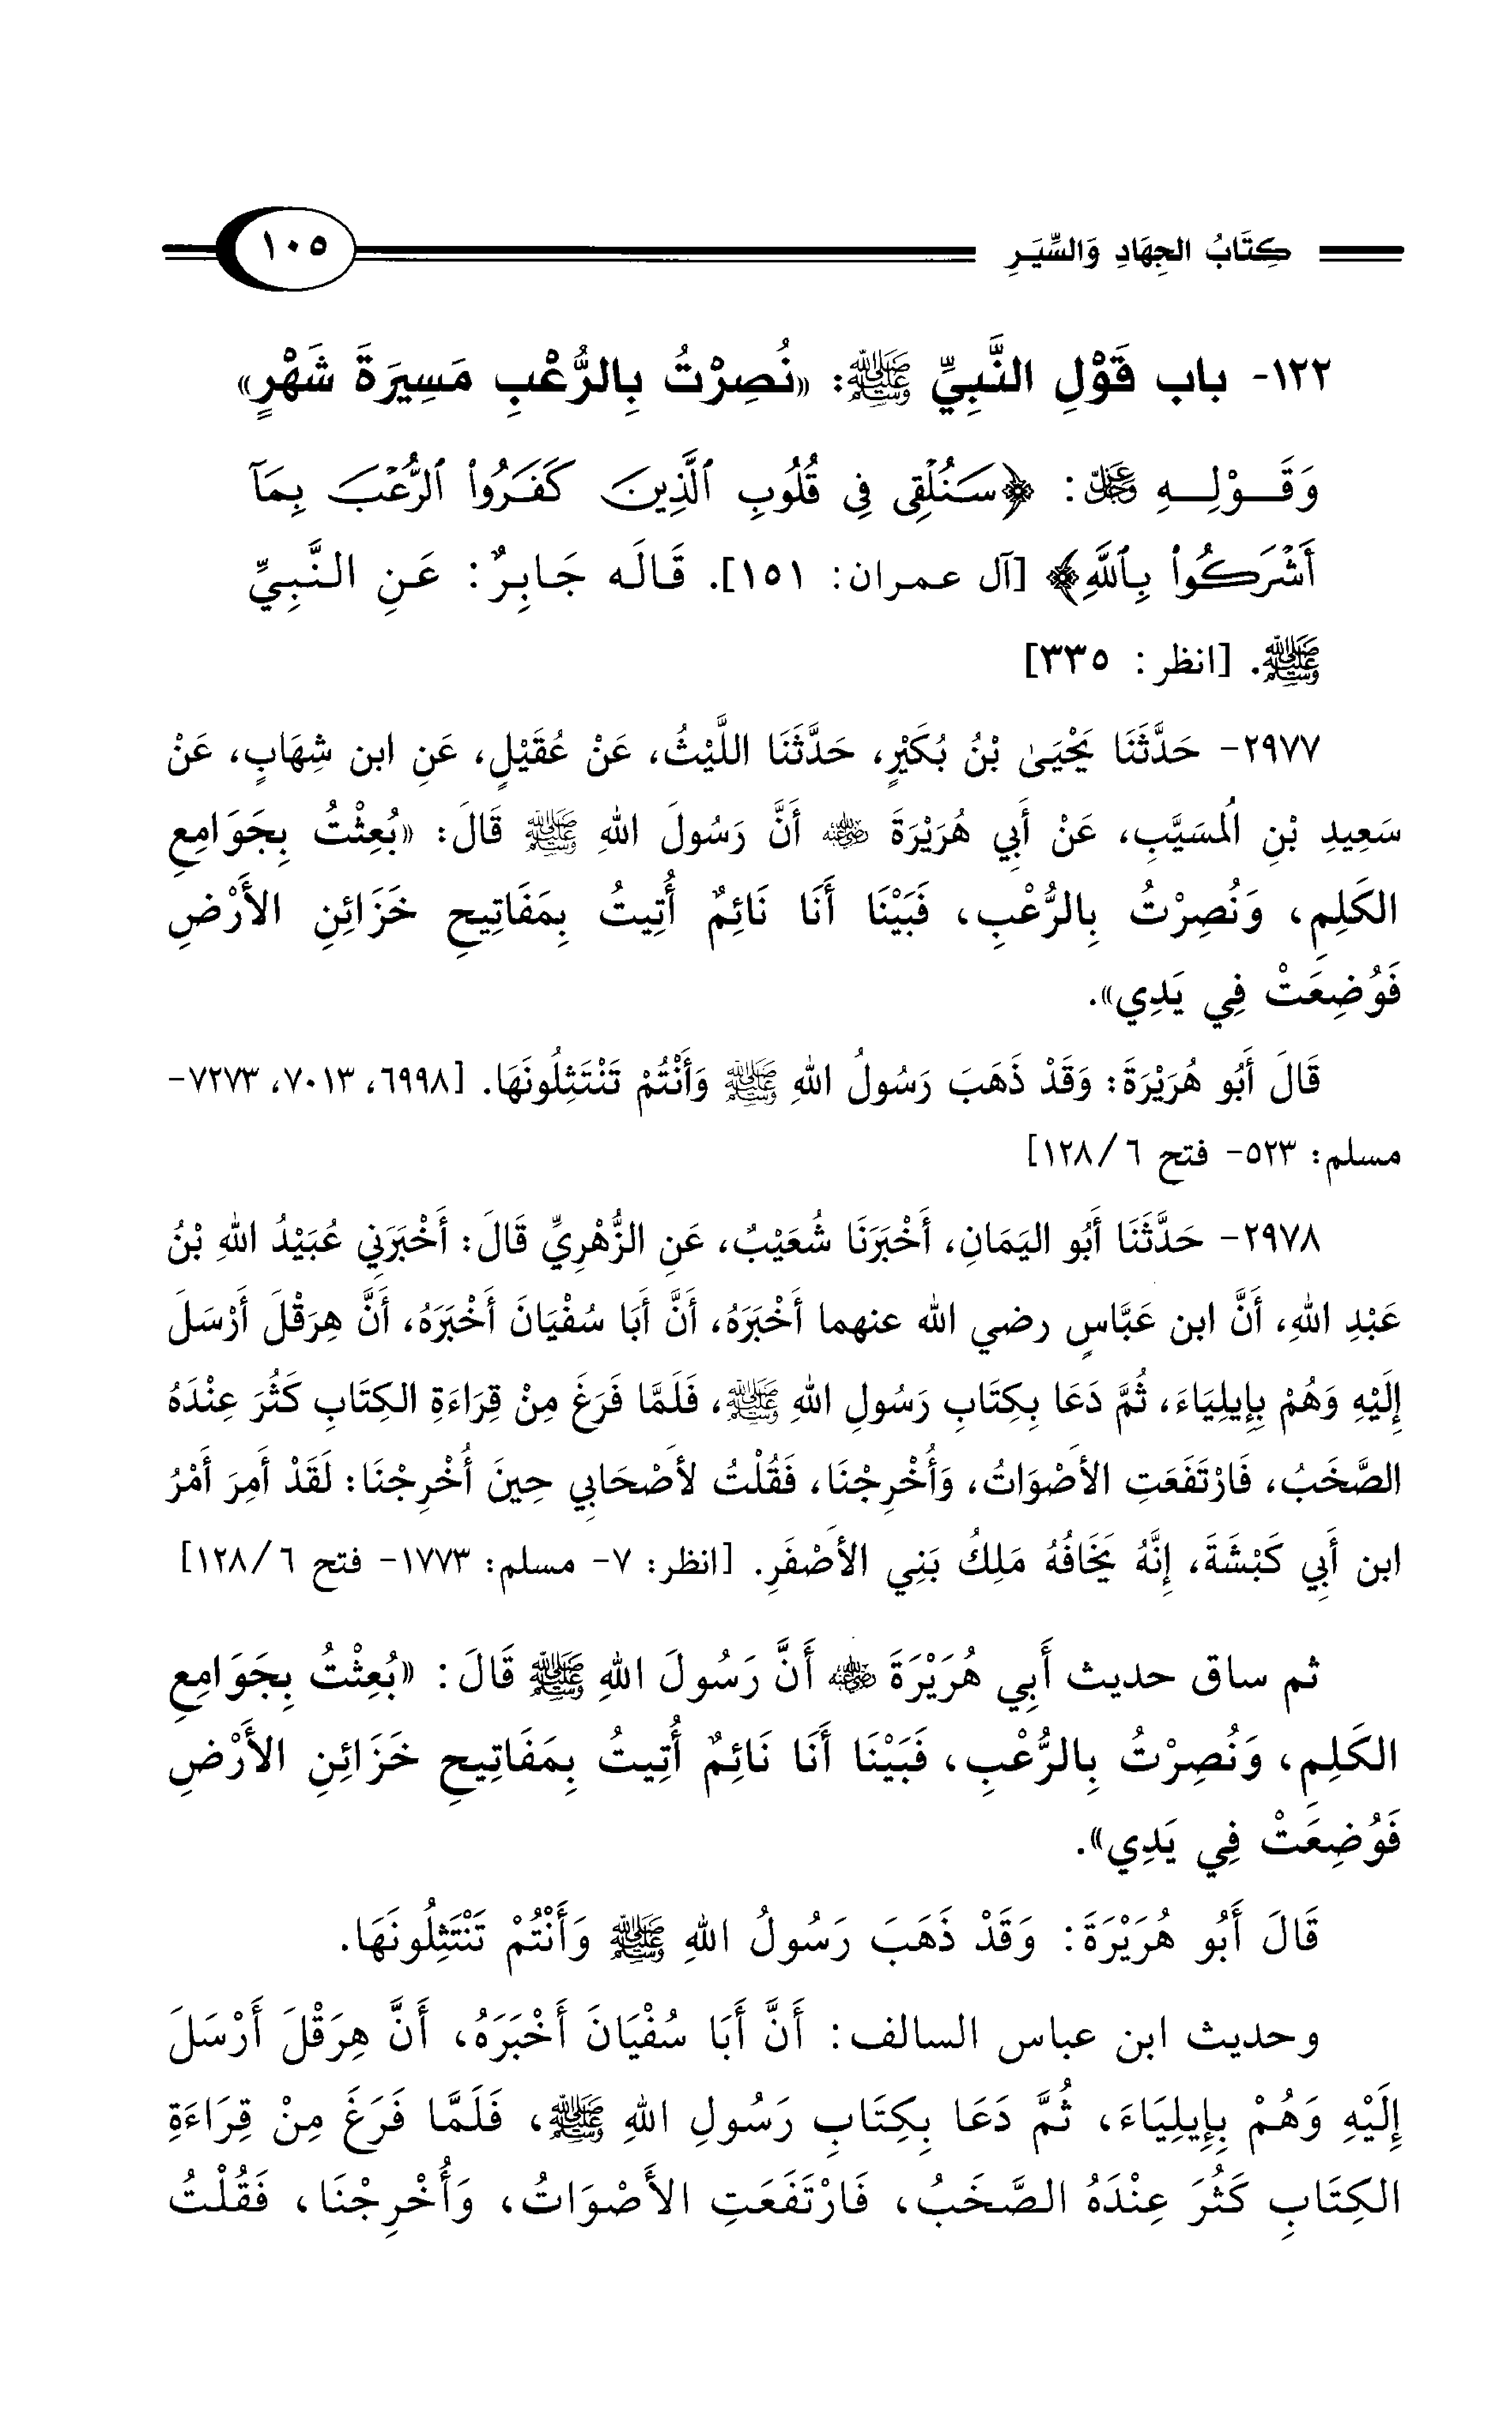 كِتَابُ الجِهَادِ وَالسِّيَرِ ١٠٥
١٢٢- باب قَوْلِ النَّبِيِّ ﷺ: «نُصِرْتُ بِالرُّعْبِ مَسِيرَةَ شَهْرٍ»
وَقَوْلِهِ ﷻ: ﴿سَنُلْقِى فِى قُلُوبِ ٱلَّذِينَ كَفَرُوا۟ ٱلرُّعْبَ بِمَآ
أَشْرَكُوا۟ بِٱللَّهِ﴾ [آل عمران: ١٥١]. قَالَه جَابِرٌ: عَنِ النَّبِيِّ
ﷺ. [انظر: ٣٣٥]
٢٩٧٧- حَدَّثَنَا يَحْيَىٰ بْنُ بُكَيْرٍ، حَدَّثَنَا اللَّيْثُ، عَنْ عُقَيْلٍ، عَنِ ابن شِهَابٍ، عَنْ
سَعِيدِ بْنِ الُمسَيَّبِ، عَنْ أَبِي هُرَيْرَةَ رضي الله عنه أَنَّ رَسُولَ اللهِ ﷺ قَالَ: «بُعِثْتُ بِجَوَامِعِ
الكَلِمِ، وَنُصِرْتُ بِالرُّعْبِ، فَبَيْنَا أَنَا نَائِمٌ أُتِيتُ بِمَفَاتِيحِ خَزَائِنِ الأَرْضِ
فَوُضِعَتْ فِي يَدِي».
قَالَ أَبُو هُرَيْرَةَ: وَقَدْ ذَهَبَ رَسُولُ اللهِ ﷺ وَأَنْتُمْ تَنْتَثِلُونَهَا. [٦٩٩٨، ٧٠١٣، ٧٢٧٣-
مسلم: ٥٢٣- فتح ٦/ ١٢٨]
٢٩٧٨- حَدَّثَنَا أَبُو اليَمَانِ، أَخْبَرَنَا شُعَيْبٌ، عَنِ الزُّهْرِيِّ قَالَ: أَخْبَرَنِي عُبَيْدُ اللهِ بْنُ
عَبْدِ اللهِ، أَنَّ ابن عَبَّاسٍ رضي الله عنهما أَخْبَرَهُ، أَنَّ أَبَا سُفْيَانَ أَخْبَرَهُ، أَنَّ هِرَقْلَ أَرْسَلَ
إِلَيْهِ وَهُمْ بِإِيلِيَاءَ، ثُمَّ دَعَا بِكِتَابِ رَسُولِ اللهِ ﷺ، فَلَمَّا فَرَغَ مِنْ قِرَاءَةِ الكِتَابِ كَثُرَ عِنْدَهُ
الصَّخَبُ، فَارْتَفَعَتِ الأَصْوَاتُ، وَأُخْرِجْنَا، فَقُلْتُ لأَصْحَابِي حِينَ أُخْرِجْنَا: لَقَدْ أَمِرَ أَمْرُ
ابن أَبِي كَبْشَةَ، إِنَّهُ يَخَافُهُ مَلِكُ بَنِي الأَصْفَرِ. [انظر: ٧- مسلم: ١٧٧٣- فتح ٦/ ١٢٨]
ثم ساق حديث أَبِي هُرَيْرَةَ رضي الله عنه أَنَّ رَسُولَ اللهِ ﷺ قَالَ: «بُعِثْتُ بِجَوَامِعِ
الكَلِمِ، وَنُصِرْتُ بِالرُّعْبِ، فَبَيْنَا أَنَا نَائِمٌ أُتِيتُ بِمَفَاتِيحِ خَزَائِنِ الأَرْضِ
فَوُضِعَتْ فِي يَدِي».
قَالَ أَبُو هُرَيْرَةَ: وَقَدْ ذَهَبَ رَسُولُ اللهِ ﷺ وَأَنْتُمْ تَنْتَثِلُونَهَا.
وحديث ابن عباس السالف: أَنَّ أَبَا سُفْيَانَ أَخْبَرَهُ، أَنَّ هِرَقْلَ أَرْسَلَ
إِلَيْهِ وَهُمْ بِإِيلِيَاءَ، ثُمَّ دَعَا بِكِتَابِ رَسُولِ اللهِ ﷺ، فَلَمَّا فَرَغَ مِنْ قِرَاءَةِ
الكِتَابِ كَثُرَ عِنْدَهُ الصَّخَبُ، فَارْتَفَعَتِ الأَصْوَاتُ، وَأُخْرِجْنَا، فَقُلْتُ